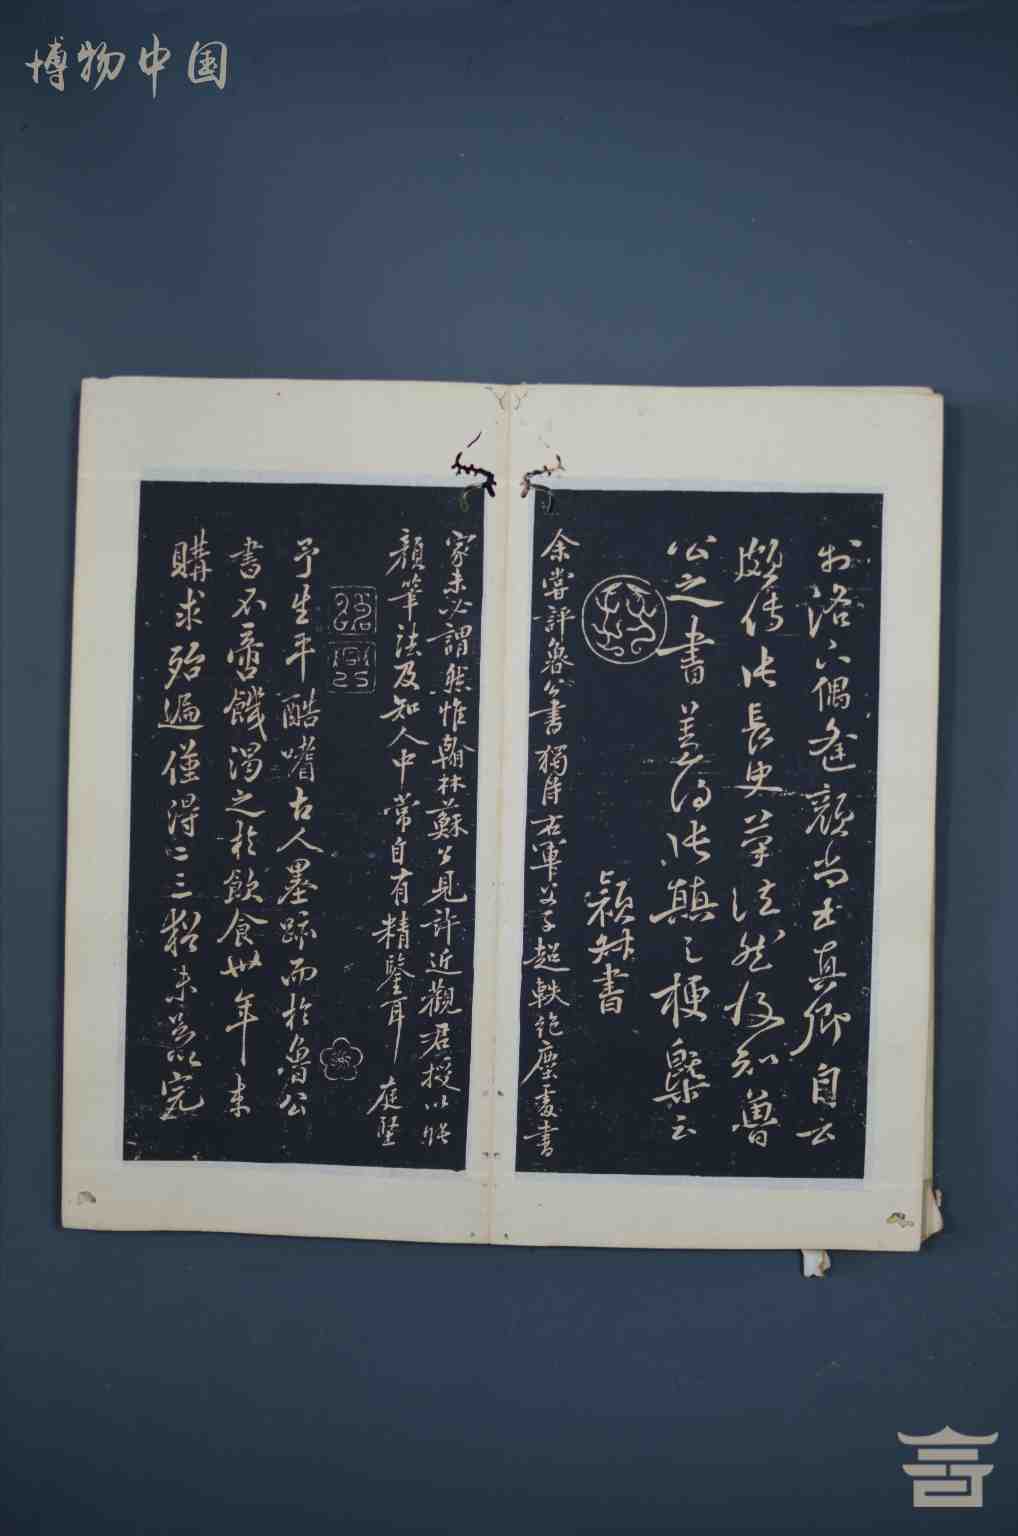 博物中国
於洛下偶逢顏尚書真卿自云
頗傳張長史筆法然後知魯
公之書善得張顛之梗槩云
穎叔書
余嘗評魯公書獨得右軍父子超軼絕塵處書
家未必謂然惟翰林蘇公見許近觀君授以
顏筆法及知人中常自有精鑒耳
庭堅
予生平酷嗜古人墨跡而於魯公
書不啻饑渴之於飲食卅年來
購求殆遍僅得二三未足以完